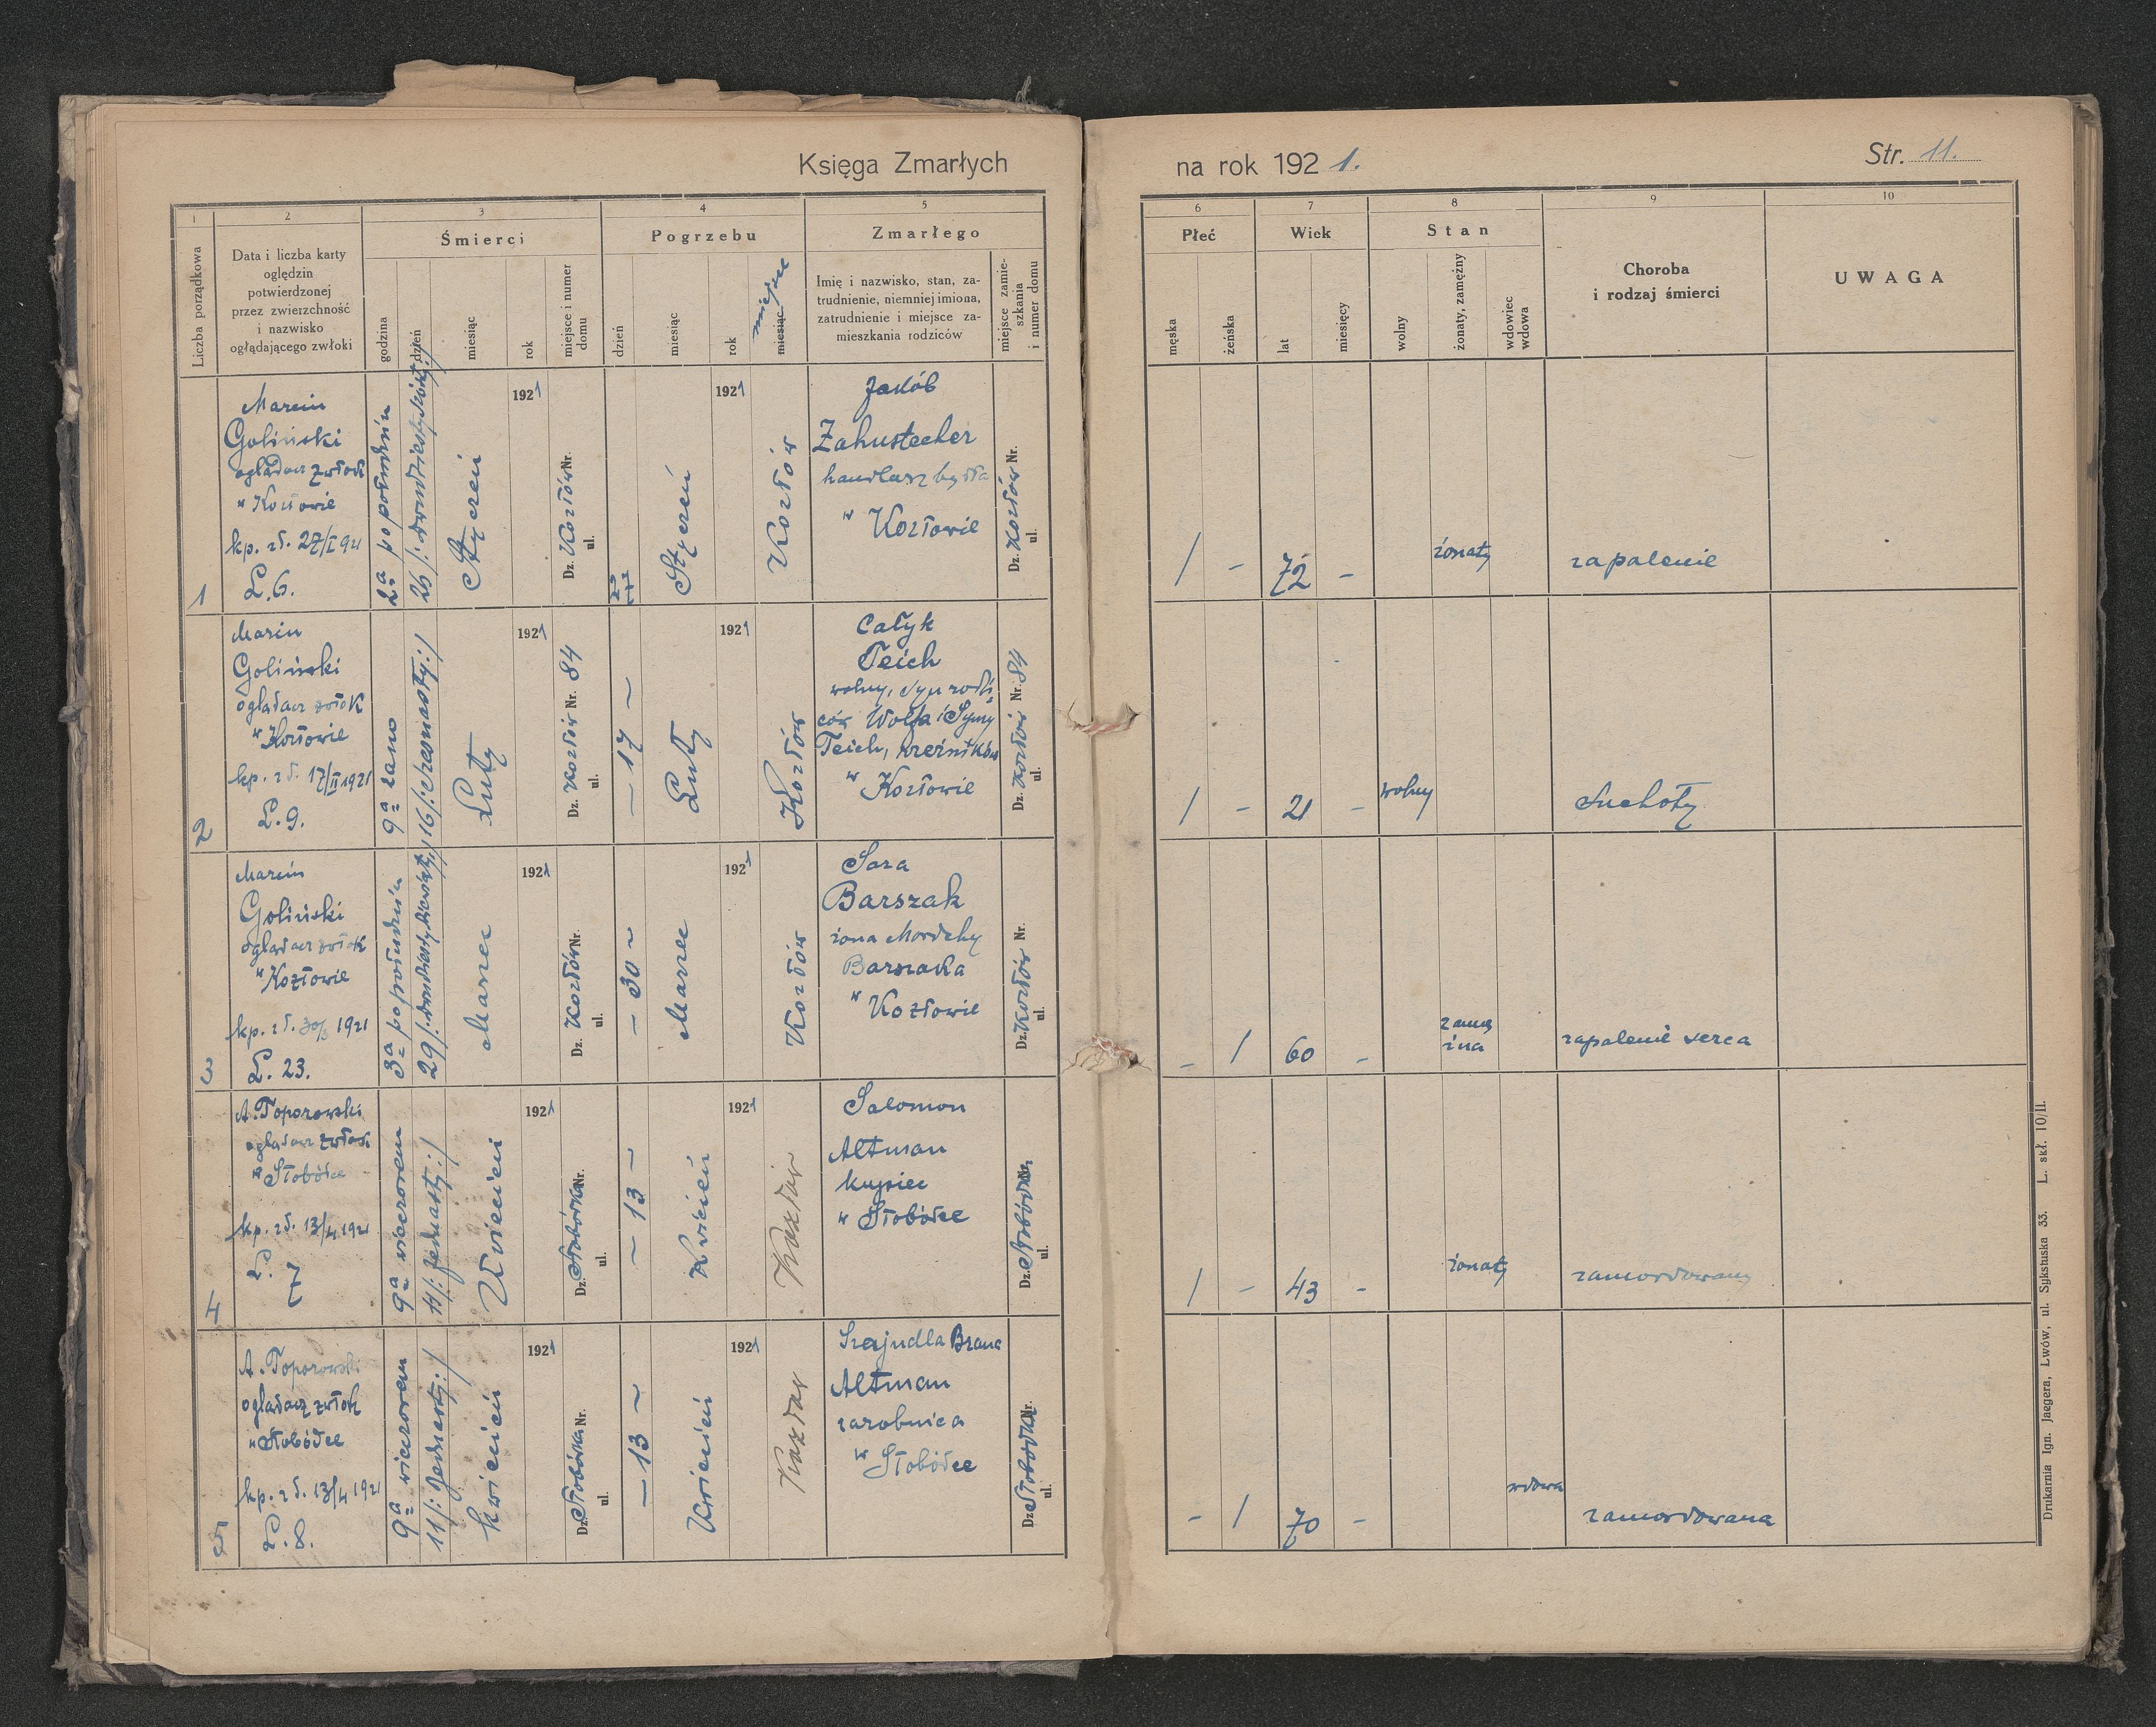 Księga Zmarłych
na rok 1921.
Str. 11.
1
2
3
4
5
6
7
8
9
10
Liczba porządkowa
Data i liczba karty
oględzin
potwierdzonej
przez zwierzchność
i nazwisko
oglądającego zwłoki
Śmierci
godzina
dzień
miesiąc
rok
miejsce i numer
domu
Pogrzebu
dzień
miesiąc
rok
miesiąc
miejsce
Zmarłego
Imię i nazwisko, stan, za-
trudnienie, niemniej imiona,
zatrudnienie i miejsce za-
mieszkania rodziców
miejsce zamie-
szkania
i numer domu
Płeć
męska
żeńska
Wiek
lat
miesięcy
Stan
wolny
żonaty, zamężny
wdowiec
wdowa
Choroba
i rodzaj śmierci
UWAGA
1
Marcin
Goliński
oglądacz zwłok
w Kozłowie
kp. zd. 27/I 921
L.6.
2a po południu
26 /: dwudziestyszósty :/
Styczeń
1921
Dz. Kozłów Nr.
ul.
27
Styczeń
1921
Kozłów
Jakób
Zahustecher
handlarz bydła
w Kozłowie
Dz. Kozłów Nr.
ul.
/
-
72
-
żonaty
zapalenie
2
Marcin
Goliński
oglądacz zwłok
w Kozłowie
kp. zd. 17/II 1921
L.9.
9a rano
16 /: szesnasty :/
Luty
1921
Dz. Kozłów Nr. 84
ul.
– 17 –
Luty
1921
Kozłów
Całyk
Teich
wolny, syn rodzi
ców Wolfa i Symy
Teich, rzeźników
w Kozłowie
Dz. Kozłów Nr. 84
ul.
/
-
21
-
wolny
Suchoty
3
Marcin
Goliński
oglądacz zwłok
w Kozłowie
kp. zd. 30/3 1921
L. 23.
3a po południu
29 /: dwudziestydziewiąty :/
Marzec
1921
Dz. Kozłów Nr.
ul.
– 30 –
Marzec
1921
Kozłów
Sara
Barszak
żona Mordchy
Barszaka
w Kozłowie
Dz. Kozłów Nr.
ul.
-
/
60
-
zamę
żna
zapalenie serca
4
A. Toporowski
oglądacz zwłok
w Słobódce
kp. zd. 13/4 1921
L. 7
9a wieczorem
11 /: jedenasty :/
Kwiecień
1921
Dz. Słobódka Nr.
ul.
– 13 –
Kwiecień
1921
Kozłów
Salomon
Altman
kupiec
w Słobódce
Dz. Słobódka Nr.
ul.
/
-
43
-
żonaty
zamordowany
5
A. Toporowski
oglądacz zwłok
w Słobódce
kp. zd. 13/4 1921
L. 8.
9a wieczorem
11 /: jedenasty :/
kwiecień
1921
Dz. Słobódka Nr.
ul.
– 13 –
Kwiecień
1921
Kozłów
Szajndla Brana
Altman
zarobnica
w Słobódce
Dz. Słobódka Nr.
ul.
-
/
70
-
wdowa
zamordowana
Drukarnia Ign. Jaegera, Lwów, ul. Sykstuska 33. L. skł. 10/II.